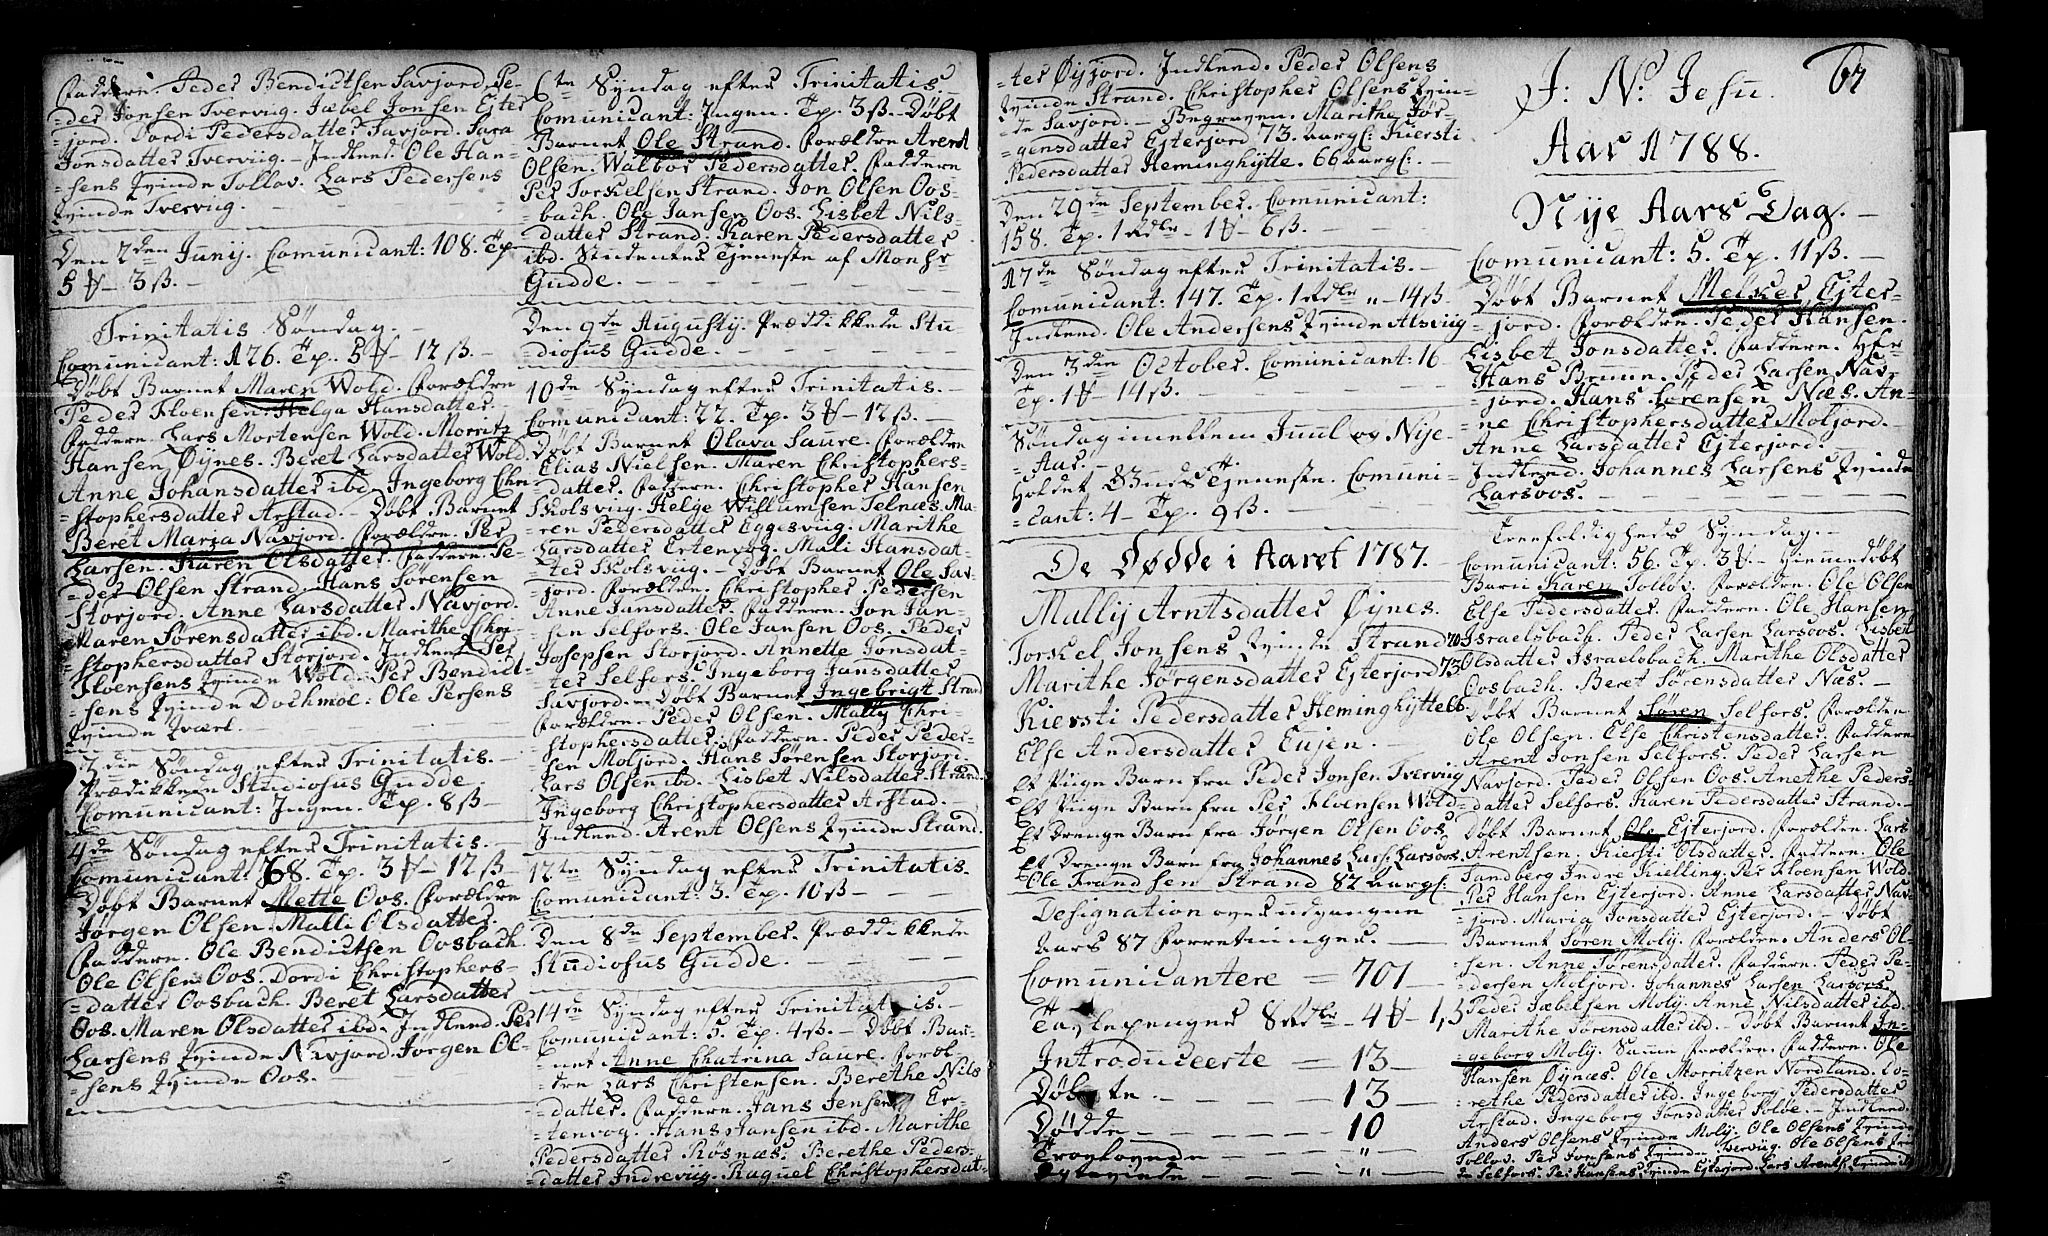 Faddern. Peder Bendictsen Savjord. Pe-
der Jonsen Tverviig. Jæbel Jonsen Ejter
jord. Dordi Pedersdatter Savjord. Sara
Jonsdatter Tverviig. – Indleed. Ole Han-
=sens Qvinde Tollov. Lars Pedersens
Qvinde Tverviig.
Den 2den Junij. Comunicant: 108. Tp
5 – 3ß. –
Trinitatis Søndag. –
Comunicant: 126. Tp. 5 – 12ß. –
Døbt Barnet Maren Wold. Forældre
Peder Floensen. Helga Hansdatter.
Faddern. Lars Mortensen Wold. Morritz
Hansen Øynes. Beret Larsdatter Wold.
Anne Johansdatter ibd. Ingeborg Chri
=stophersdatter Arstad. – Døbt Barnet
Beret Maria Navjord. Forældre. Per
Larsen. Karen Olsdatter. Faddern. Pe-
der Olsen Strand. Hans Sørensen
Storjord. Anne Larsdatter Navjord.
Maren Sørensdatter ibd. Marithe Chri-
=stophersdatter Storjord. Indleed. Per
Floensens Qvinde Wold. Per Bendict-
sens Qvinde Dochmoe. Ole Persens
Qvinde Qværl.
3die Søndag efter Trinitatis. –
Prædikken Studiosus Gudde
Comunicant: Ingen. Tp. 8ß –
4de Søndag efter Trinitatis.
Comunicant: 68. Tp. 3 – 12ß
Døbt Barnet Mette Oos. Forældre
Jørgen Olsen. Malli Olsdatter.
Faddern. Ole Bendictsen Oosbach.
Ole Olsen Oos. Dordi Christophers-
=datter Oosbach. Beret Larsdatter
Oos. Maren Olsdatter ibd. Indleed. Per
Larsens Qvinde Navjord. Jørgen Ol-
=sens Qvinde Oos.
6te Syndag efter Trinitatis. –
Comunicant: Ingen. Tp. 3ß. – Døbt
Barnet Ole Strand. Forældre Arent
Olsen. Walbor Pedersdatter. Faddere
Per Torkelsen Strand. Jon Olsen Oos-
=bach. Ole Jansen Oos. Lisbet Nils-
datter Strand. Karen Pedersdatter
ibd. Studentes Tjeneste af Monsr
Gudde.
Den 9de Augusty. Præddikkede Stu
=diosus Gudde.
10de Syndag efter Trinitatis. –
Comunicant: 22. Tp. 3 – 12ß. –
Døbt Barnet Olava Saure. Forældre
Elias Nielsen. Maren Christophers-
=datter. Faddern. Christopher Hansen
Skolsviig. Helge Willumsen Selnæs. Ma-
ren Pedersdatter Eggesviig. Marithe
Larsdatter Ertenvog. Mali Hansdat-
=ter Skolsviig. – Døbt Barnet Ole Sav-
jord. Forældre. Christopher Pedersen
Anne Jansdatter. Faddern. Jon Jan-
sen Selfors. Ole Jansen Oos. Peder
Josepsen Storjord. Annette Jonsdat-
=ter Selfors. Ingeborg Jansdatter
Savjord. – Døbt Barnet Ingebrigt Strand
Forældre. Peder Olsen. Mally Chri-
=stophersdatter. Faddern. Peder Peder-
sen Moljord. Hans Sørensen Storjord.
Lars Olsen ibd. Lisbet Nilsdatter Strand.
Ingeborg Christophersdatter Arstad.
Indleed. Arent Olsens Qvinde Strand.
12te Syndag efter Trinitatis.
Comunicant: 3. Tp. 10ß –
Den 8de September. Præddikkede
Studiosus Gudde.
14de Syndag efter Trinitatis. –
Comunicant: 5. Tp. 4ß. – Døbt Bar-
=net Anne Chatrina Saure. Foræl
dre Lars Christensen. Berethe Nils
=datter. Faddern. Jans Jensen Er-
=tenvog. Hans Hansen ibd. Marithe
Pedersdatter Røsnæs. Berethe Peders-
datter Indreviig. Raquel Christophersdat-
=ter Øyjord. Indleed. Peder Olsens
Qvinde Strand. Christopher Olsens Qvin-
=de Savjord. – Begraven. Marithe Jør-
=gensdatter Ejterjord 73. aargl: Kiersti
Pedersdatter Heminghytte. 66 aargl: –
Den 29de September. Comunicant:
158. Tp. 1 Rdlr – 1 – 6ß. –
17de Søndag efter Trinitatis. –
Comunicant: 147. Tp. 1 Rdlr " – 14ß.
Indleed. Ole Andersens Qvinde Alsviig
Den 3die October. Comunicant: 16
Tp. 1 – 14ß.
Søndag imellem Juul og Nije-
=Aar. –
Holdet Guds Tjeneste. Comuni-
=cant: 4 – Tp. 9ß. –
De Dødde i Aaret 1787.
Mallij Arntsdatter Øynes.
Torkel Jonsens Qvinde Strand 70
Marithe Jørgensdatter Ejterjord 73.
Kiersti Pedersdatter Heminghytte 66
Else Andersdatter Eujen. –
Et Piige Barn fra Peder Jonsen Tverviig
Et Piige Barn fra Per Floensen Wold
Et Drenge Barn fra Jørgen Olsen Oos
Et Drenge Barn fra Johannes Lars: Larsoos
Ole Frandsen Strand 82 aargl:
Designation over udgangne
Aars 87 Forretninger. –
Comunicantere = 701
Tavlepenger 8 Rdlr – 4 – 13
Introduceerte – 13
Døbte – 13
Dødde – 10
Trovlovede – "
Egtevinde – "
64
J: N: Jesu.
Aar 1788.
Nye Aars Dag. –
Comunicant: 5. Tp. 11ß. –
Døbt Barnet Melker Ejter-
=jord. Forældre. Peder Hansen.
Lisbet Jonsdatter. Faddern. Hr
Hans Bruun. Peder Larsen Nav-
jord. Hans Sørensen Næs. An-
ne Christophersdatter Moljord.
Anne Larsdatter Ejterjord. –
Indleed. Johannes Larsens Qvinde
Larsoos.
Treefoldigheds Syndag. –
Comunicant: 56. Tp. 3 – Hiemmedøbt
Barn Karen Tollov. Forældre. Ole Olsen
Else Pedersdatter. Faddern. Ole Hansen
Israelsbach. Peder Larsen Larsoos. Lisbet
Olsdatter Israelsbach. Marithe Olsdatter
Oosbach. Beret Sørensdatter Næs. –
Døbt Barnet Søren Selfors. Forældre
Ole Olsen. Else Christensdatter. Faddern
Arent Jonsen Selfors. Peder Larsen
Navjord. Peder Olsen Oos. Anethe Peders-
=datter Selfors. Karen Pedersdatter Strand. –
Døbt Barnet Ole Ejterjord. Forældre. Lars
Arentsen. Kiersti Olsdatter. Faddern. Ole
Sandberg Indre Kielling. Per Floensen Wold.
Per Hansen Ejterjord. Anne Larsdatter Nav-
jord. Maria Jonsdatter Ejterjord. – Døbt
Barnet Søren Molij. Forældre. Anders Ol-
sen. Anne Sørensdatter. Faddern. Peder Pe-
dersen Moljord. Johannes Larsen Larsoos.
Peder Jæbelsen Molij. Anne Nilsdatter ibd.
Marithe Sørensdatter ibd – Døbt Barnet In-
=geborg Molij. Samme Forældre. Faddern. Ole
Hansen Øynæs. Ole Morritzen Nordland. Lo-
rethe Pedersdatter ibd. Ingeborg Pedersdatter
Arstad. Ingeborg Jonsdatter Soløe. – Indleed.
Anders Olsens Qvinde Molij. Ole Olsens Qvinde
Tollov. Per Jonsens Qvinde Tverviig. Ole Olsens Qvin
de Selfors. Per Hansens Qvinde Ejterjord. Lars Arents: Qvinde ib